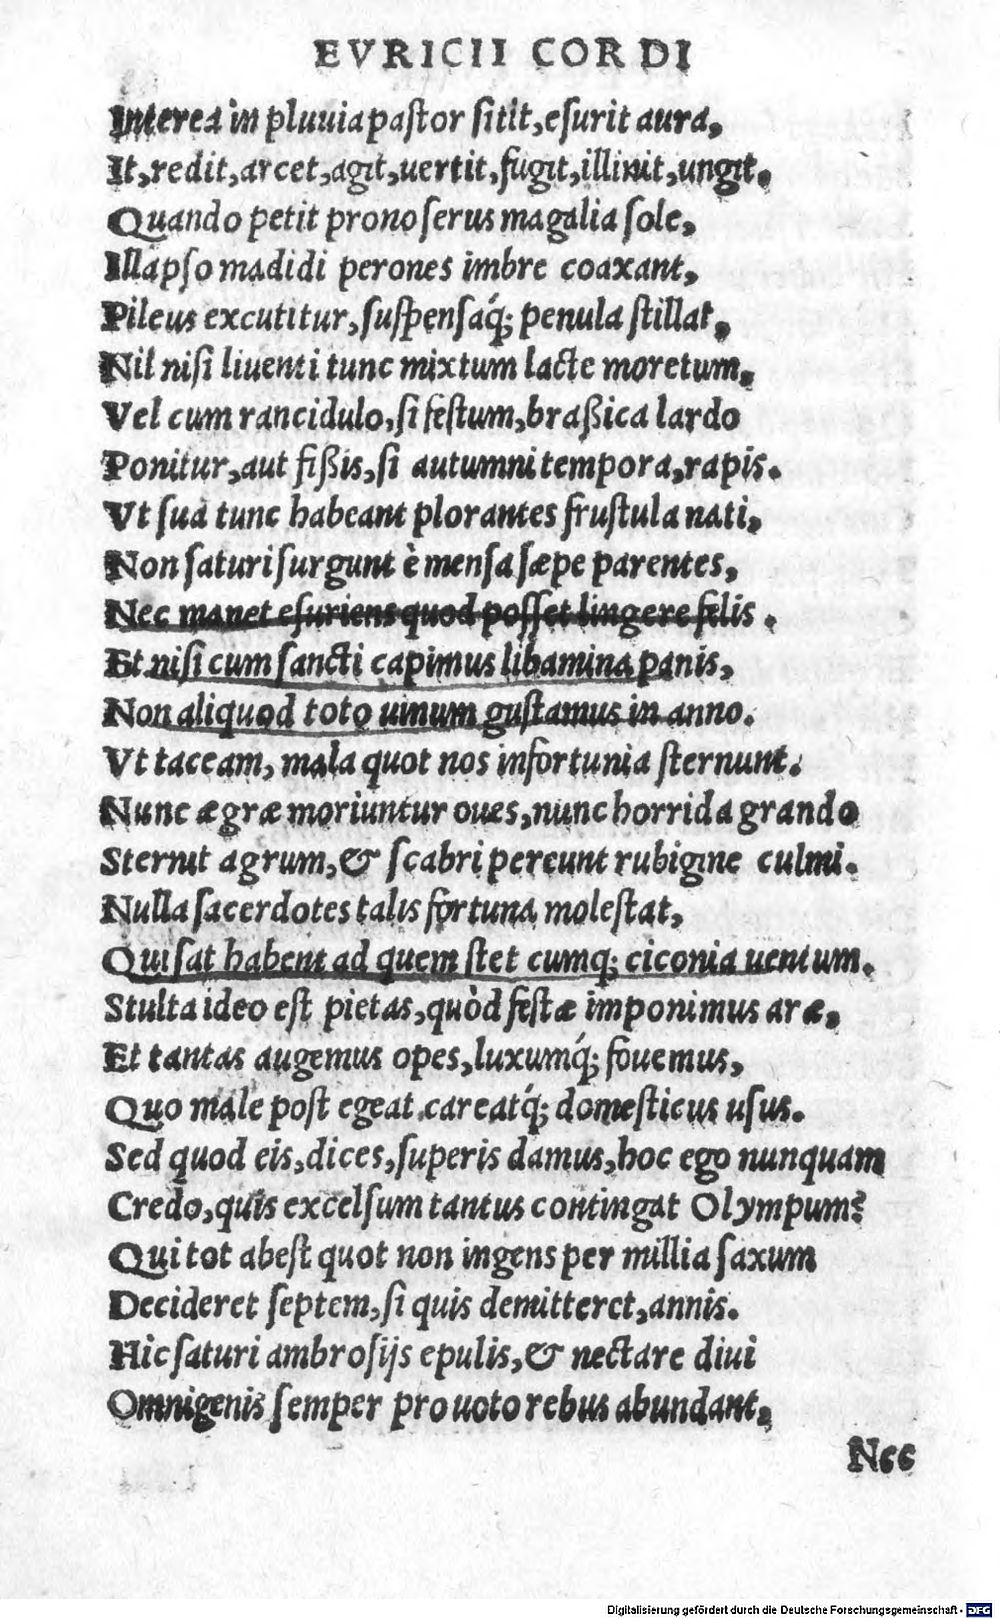 EVRICII CORDI
Interea in pluuia pastor sitit, esurit aura,
It, redit, arcet, agit, uertit, fugit, illinit, ungit.
Quando petit prono serus magalia sole,
Illapso madidi perones imbre coaxant,
Pileus excutitur, suspensaq́; penula stillat,
Nil nisi liuenti tunc mixtum lacte moretum,
Vel cum rancidulo, si festum, braßica lardo
Ponitur, aut fißis, si autumni tempora, rapis.
Vt sua tunc habeant plorantes frustula nati,
Non saturi surgunt è mensa sæpe parentes,
Nec manet esuriens quod posset lingere felis.
Et nisi cum sancti capimus libamina panis,
Non aliquod toto uinum gustamus in anno.
Vt taceam, mala quot nos infortunia sternunt.
Nunc ægræ moriuntur oues, nunc horrida grando
Sternit agrum, & scabri pereunt rubigine culmi.
Nulla sacerdotes talis fortuna molestat,
Qui sat habent ad quem stet cumq; ciconia uentum.
Stulta ideo est pietas, quòd festæ imponimus aræ,
Et tantas augemus opes, luxumq́; fouemus,
Quo male post egeat careatq́; domesticus usus.
Sed quod eis, dices, superis damus, hoc ego nunquam
Credo, quis excelsum tantus contingat Olympum?
Qui tot abest quot non ingens per millia saxum
Decideret septem, si quis demitteret, annis.
Hic saturi ambrosijs epulis, & nectare diui
Omnigenis semper pro uoto rebus abundant,
Nec
Digitalisierung gefördert durch die Deutsche Forschungsgemeinschaft - DFG